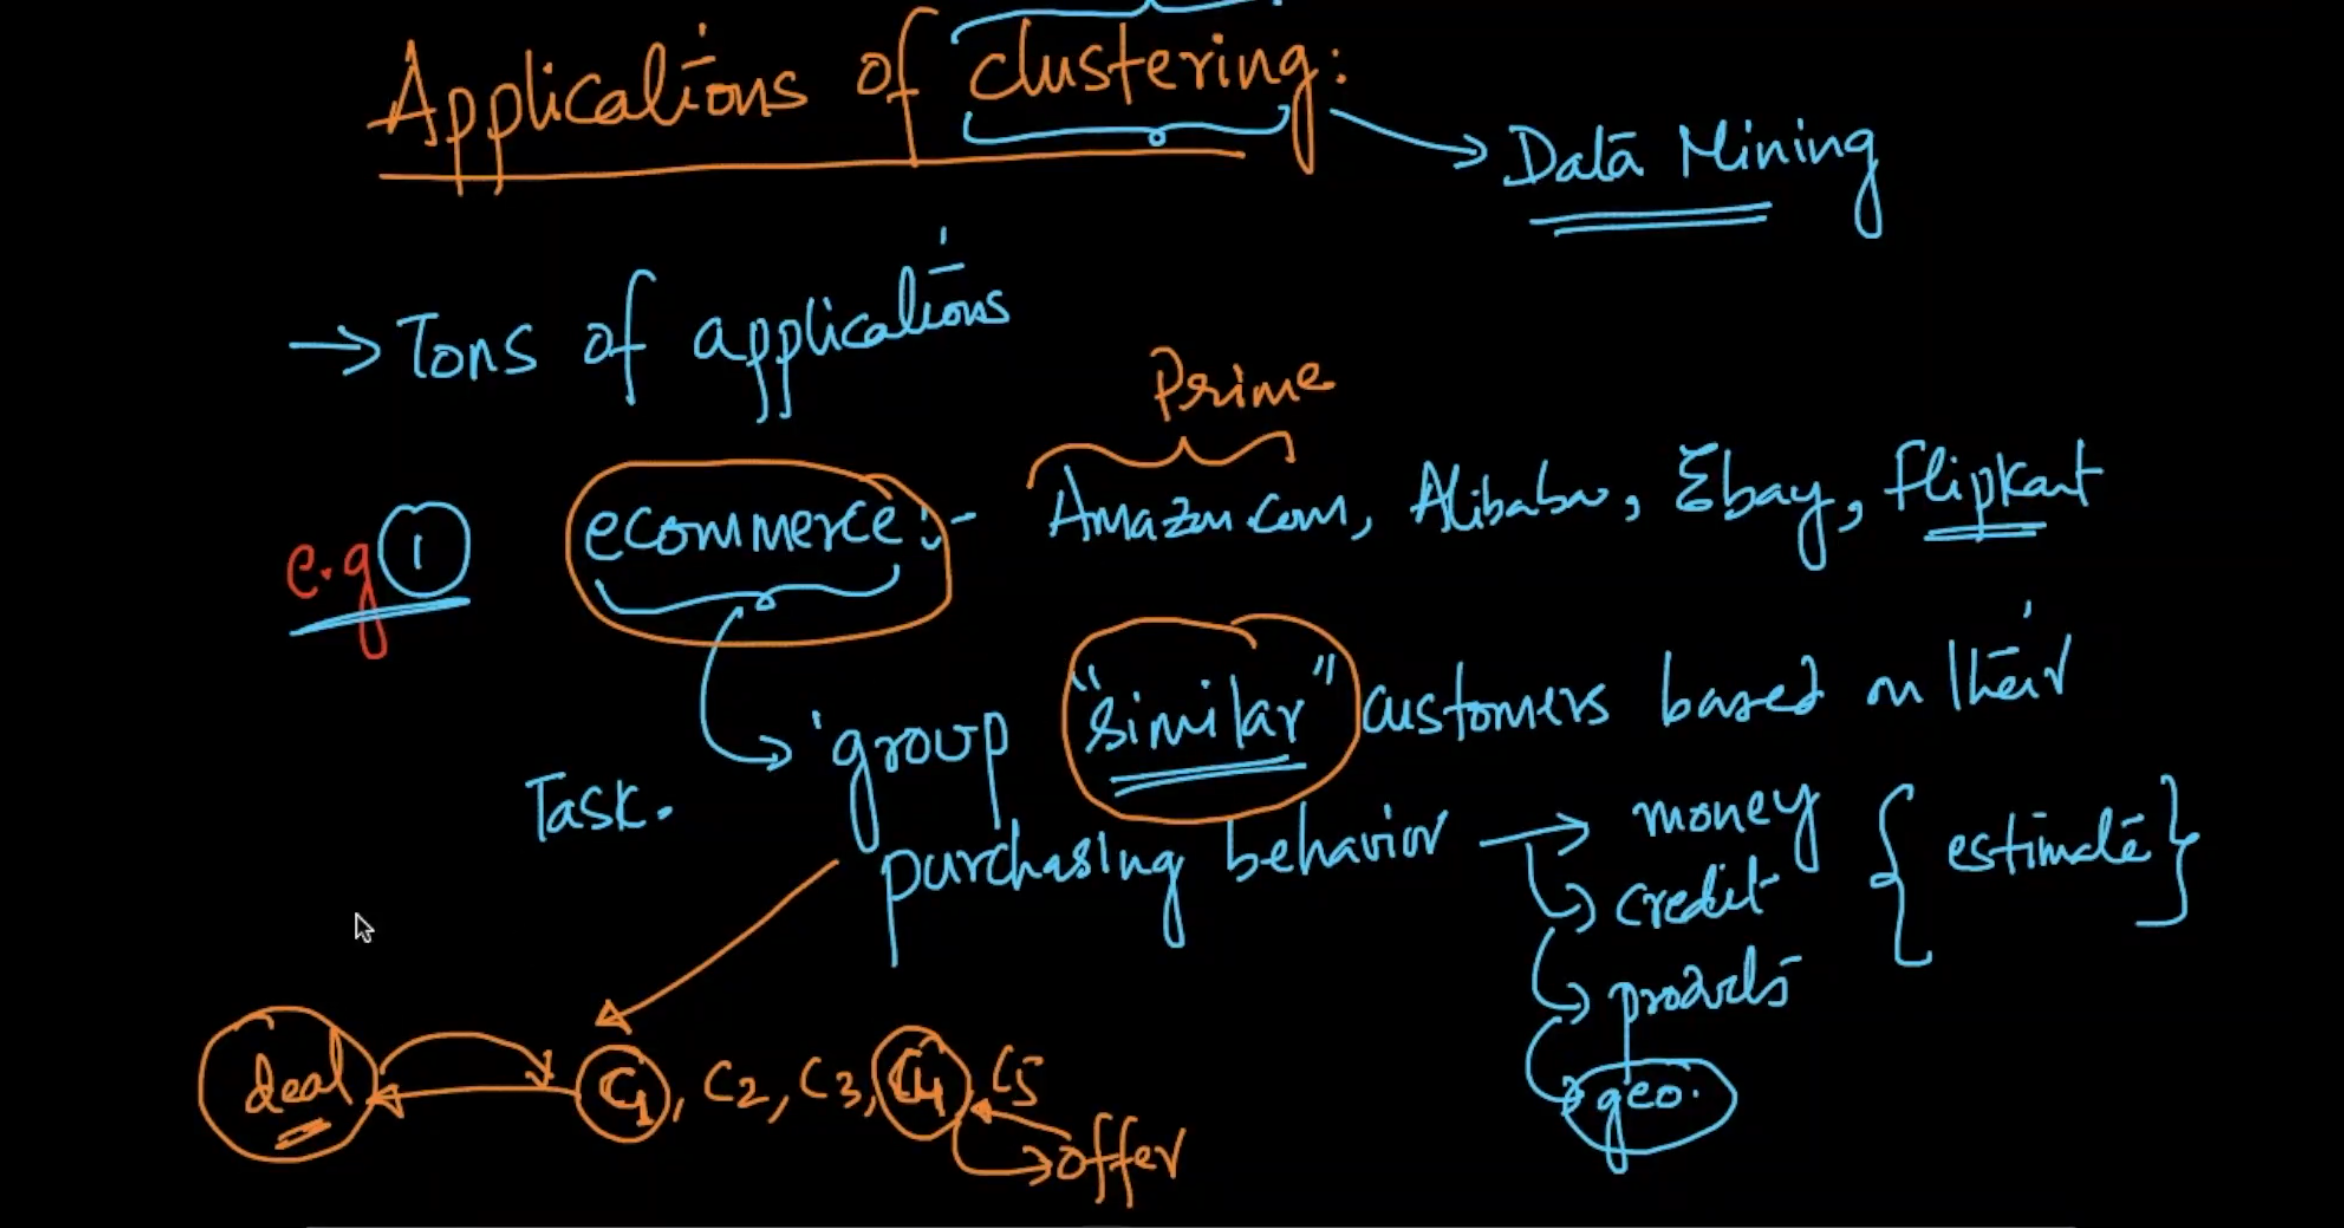 Applications of clustering:
Data Mining
→ Tons of applications
Prime
e.g 1 ecommerce:- Amazon.com, Alibaba, Ebay, flipkart
group "similar" customers based on their
Task.
purchasing behavior → money { estimate }
credit
products
deal C1, C2, C3, C4, C5
geo.
offer